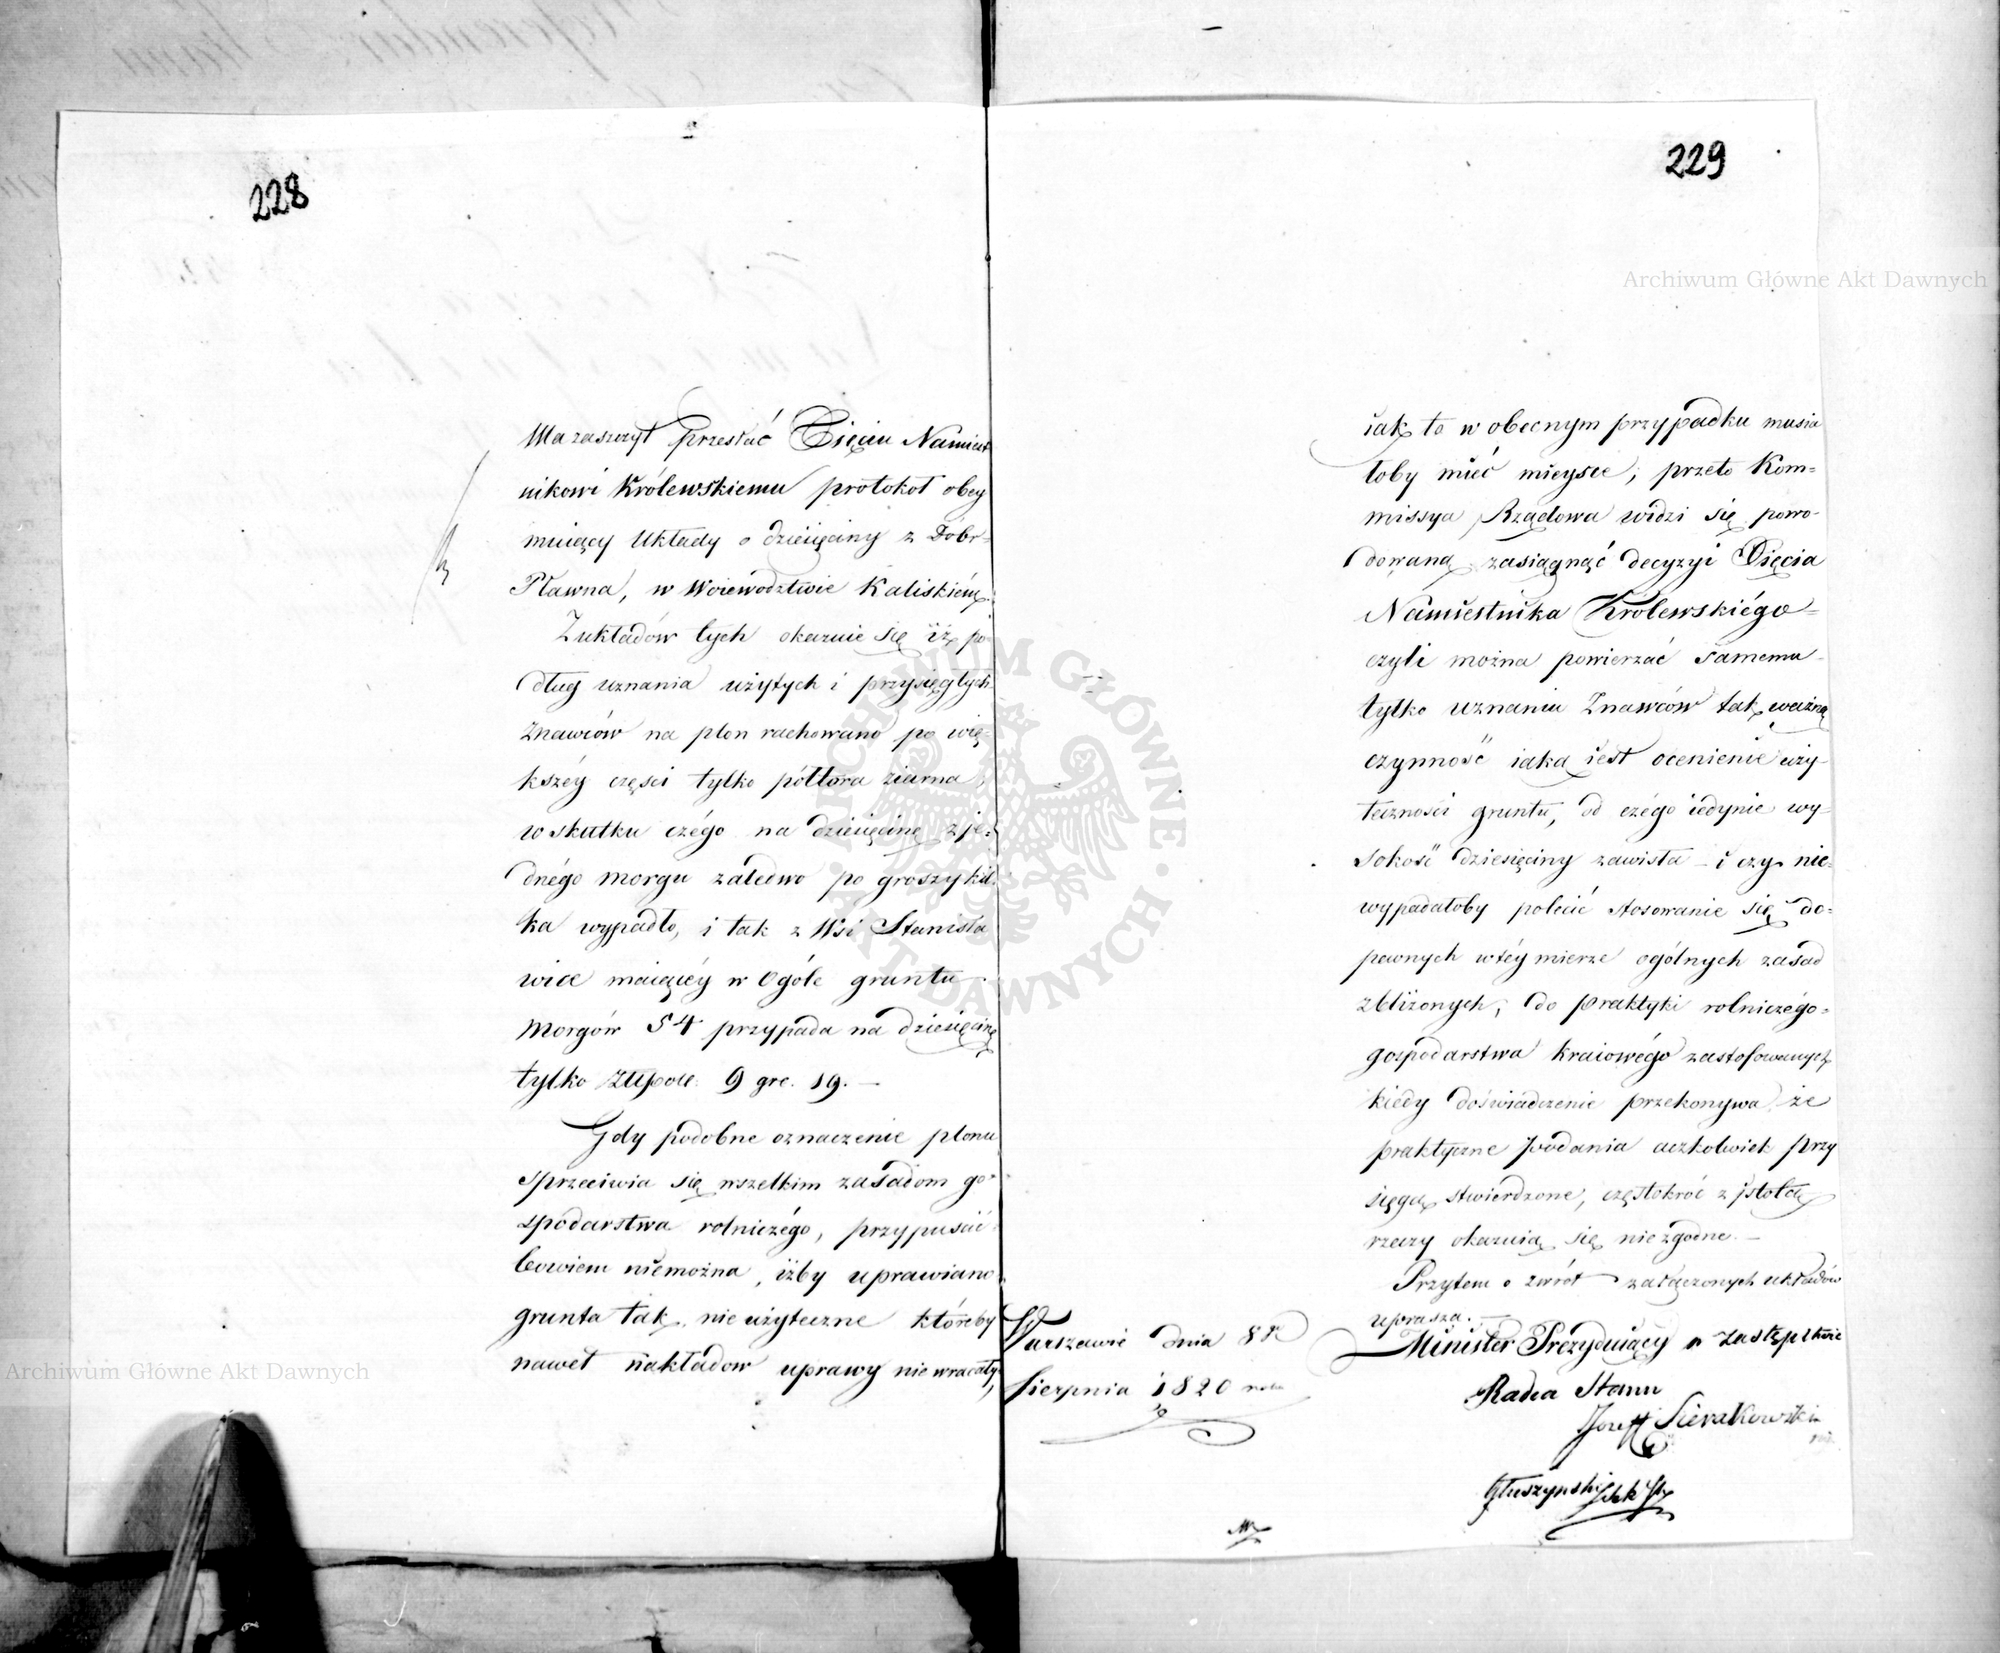 228
Ma zaszczyt przesłać Xsięciu Namiest
nikowi Królewskiemu protokół obey
muiący Układy o dziesięciny z Dobr
Pławna, w Woiewodztwie Kaliskiém.
Z układów tych okazuie się iż po
dług uznania użytych i przysięgłych
Znawców na plon rachowano po wię-
kszéy części tylko półtora ziarna,
w skutku czégo na dziesięcinę z je-
dnégo morgu zaledwo po groszy kil
ka wypadło, i tak z Wsi Stanisła
wice maiącéy w Ogóle gruntu
Morgów 54 przypada na dziesięcinę
tylko złłpols. 9 gr. 19. —
Gdy podobne oznaczenie plonu
sprzeciwia się wszelkim zasadom go-
spodarstwa rolniczégo, przypuścić
bowiem niemożna, iżby uprawiano
grunta tak nieużyteczne któreby
nawet nakładow uprawy niewracały,
229
iak to w obecnym przypadku musia
łoby mieć mieysce; przeto Kom-
missya Rządowa widzi się powo-
dowaną zasiągnąć decyzyi Xsięcia
Namiestnika Królewskiégo
czyli można powierzać samemu
tylko uznaniu Znawców tak ważną
czynność iaką iest ocenienie uży-
teczności gruntu, od czégo iedynie wy-
sokość dziesięciny zawisła — i czy nie-
wypadałoby polecić stosowanie się do-
pewnych w téy mierze ogólnych zasad
zbliżonych, do praktyki rolniczégo-
gospodarstwa kraiowégo zastosowanych
kiedy doświadczenie przekonywa że
praktyczne podania aczkolwiek przy
sięgą stwierdzone, częstokroć z istotą
rzeczy okazuią się niezgodne. —
Przytem o zwrót załączonych układów
uprasza. —
Warszawie dnia 8
Sierpnia 1820 roku
Minister Prezyduiący w zastępstwie
Radca Stanu
Jozeff Sierakowski
Głuszyński
Archiwum Główne Akt Dawnych
Archiwum Główne Akt Dawnych
ARCHIWUM GŁÓWNE AKT DAWNYCH